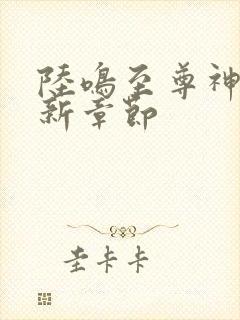 陸鳴至尊神
新章節
圭卡卡